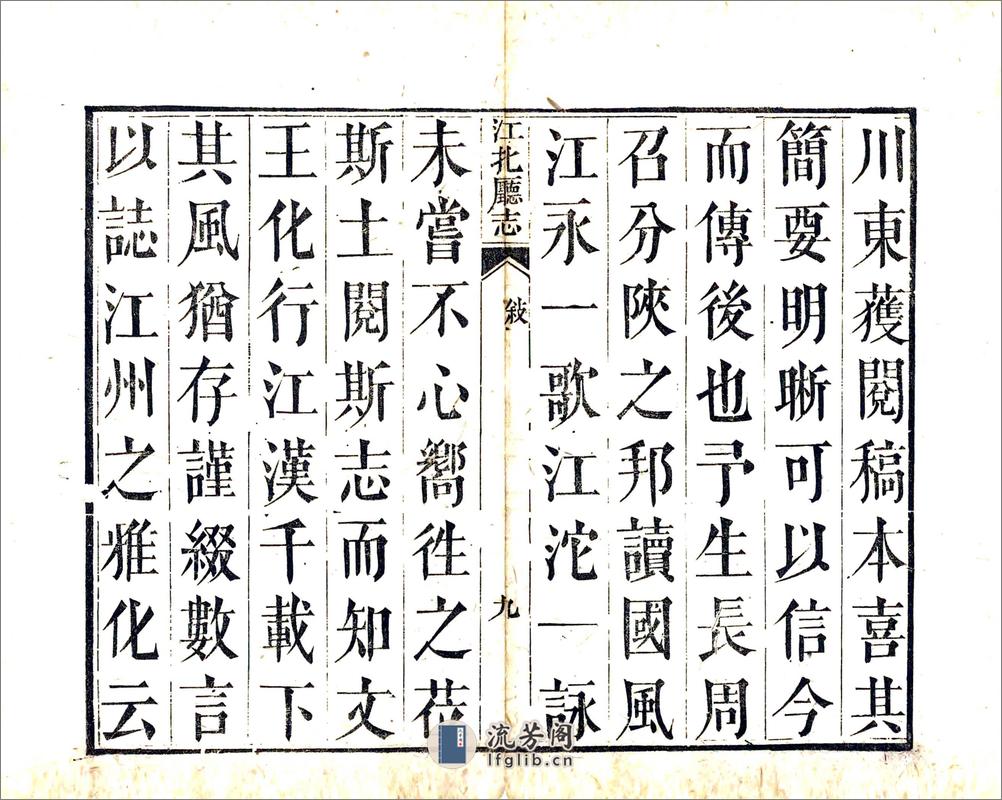 川東獲閱稿本喜其
簡要明晰可以信今
而傳後也予生長周
召分陝之邦讀國風
江永一歌江沱一詠
江北廳志
敘
九
未嘗不心嚮徃之莅
斯土閱斯志而知文
王化行江漢千載下
其風猶存謹綴數言
以誌江州之雅化云
流芳阁
lfglib.cn